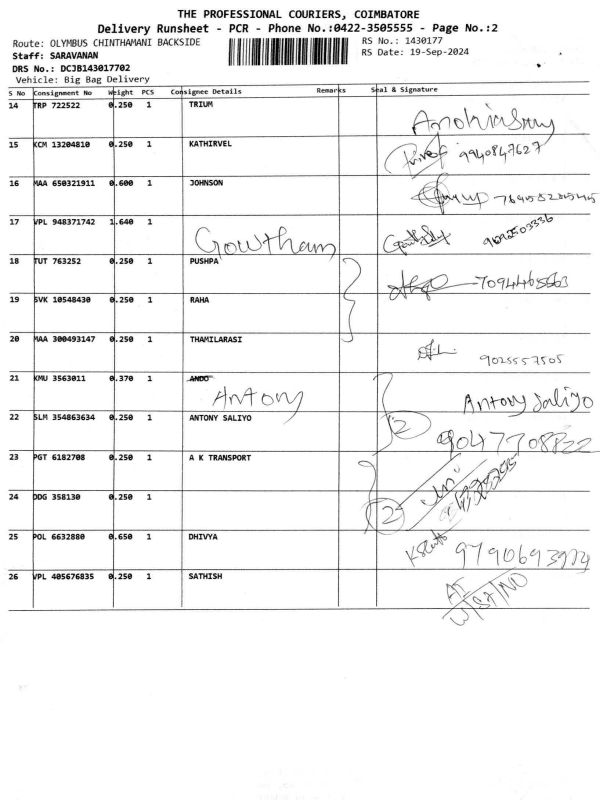 THE PROFESSIONAL COURIERS, COIMBATORE
Delivery Runsheet - PCR - Phone No.:0422-3505555 - Page No.:2
Route: OLYMBUS CHINTHAMANI BACKSIDE
RS No.: 1430177
Staff: SARAVANAN
RS Date: 19-Sep-2024
DRS No.: DCJB143017702
Vehicle: Big Bag Delivery
S No Consignment No Weight PCS Consignee Details Remarks Seal & Signature
14 TRP 722522 0.250 1 TRIUM
15 KCM 13204810 0.250 1 KATHIRVEL 9940847627
16 MAA 650321911 0.600 1 JOHNSON
17 VPL 948371742 1.640 1 Gowtham
18 TUT 763252 0.250 1 PUSHPA
19 SVK 10548430 0.250 1 RAHA
20 MAA 300493147 0.250 1 THAMILARASI 9025557505
21 KMU 3563011 0.370 1 ANDO Antony Antony Saliyo
22 SLM 354863634 0.250 1 ANTONY SALIYO 2 9047708822
23 PGT 6182708 0.250 1 A K TRANSPORT
24 DDG 358130 0.250 1 2
25 POL 6632880 0.650 1 DHIVYA
26 VPL 405676835 0.250 1 SATHISH